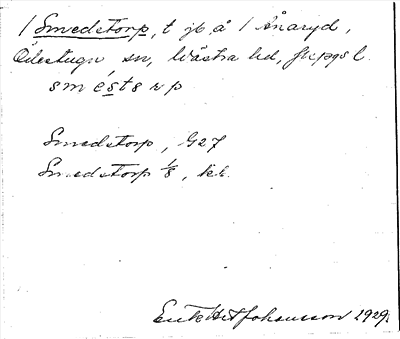 / Smedstorp, t. jb å / Ånaryd,
Ödestugu sn, Västra hd, Jkpgs l.
sméstɘrp
Smedstorp, G27
Smedstorp 1/8, kk.
Johansson 1929.